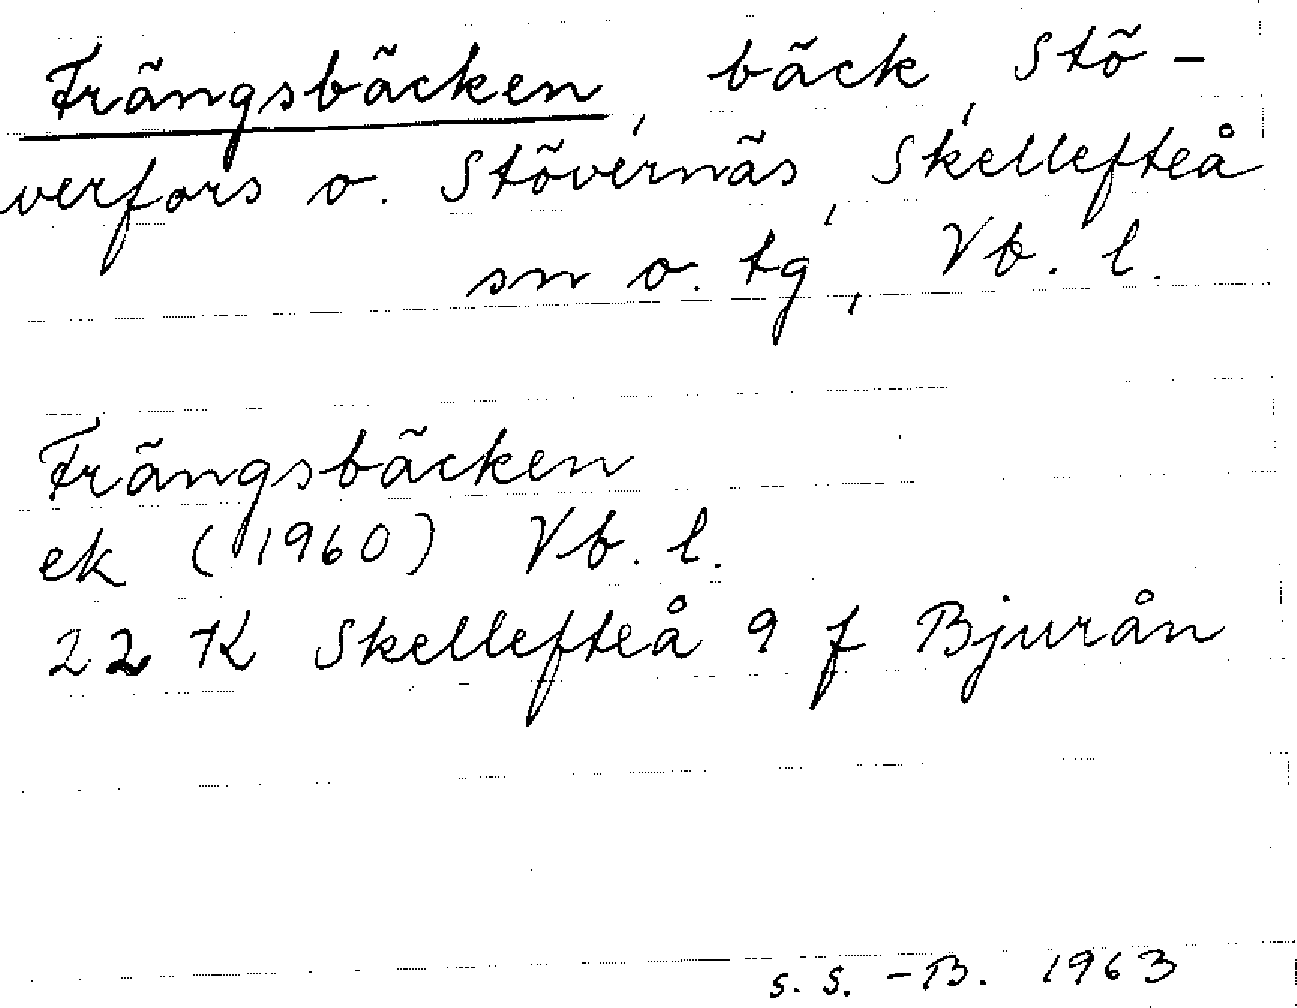 Frängsbäcken, bäck, Stö-
verfors o. Stövernäs, Skellefteå
sn o. tg, Vb. l.
Frängsbäcken
ek (1960) Vb. l.
22 K Skellefteå 9 f Bjurån
S. S. -B. 1963